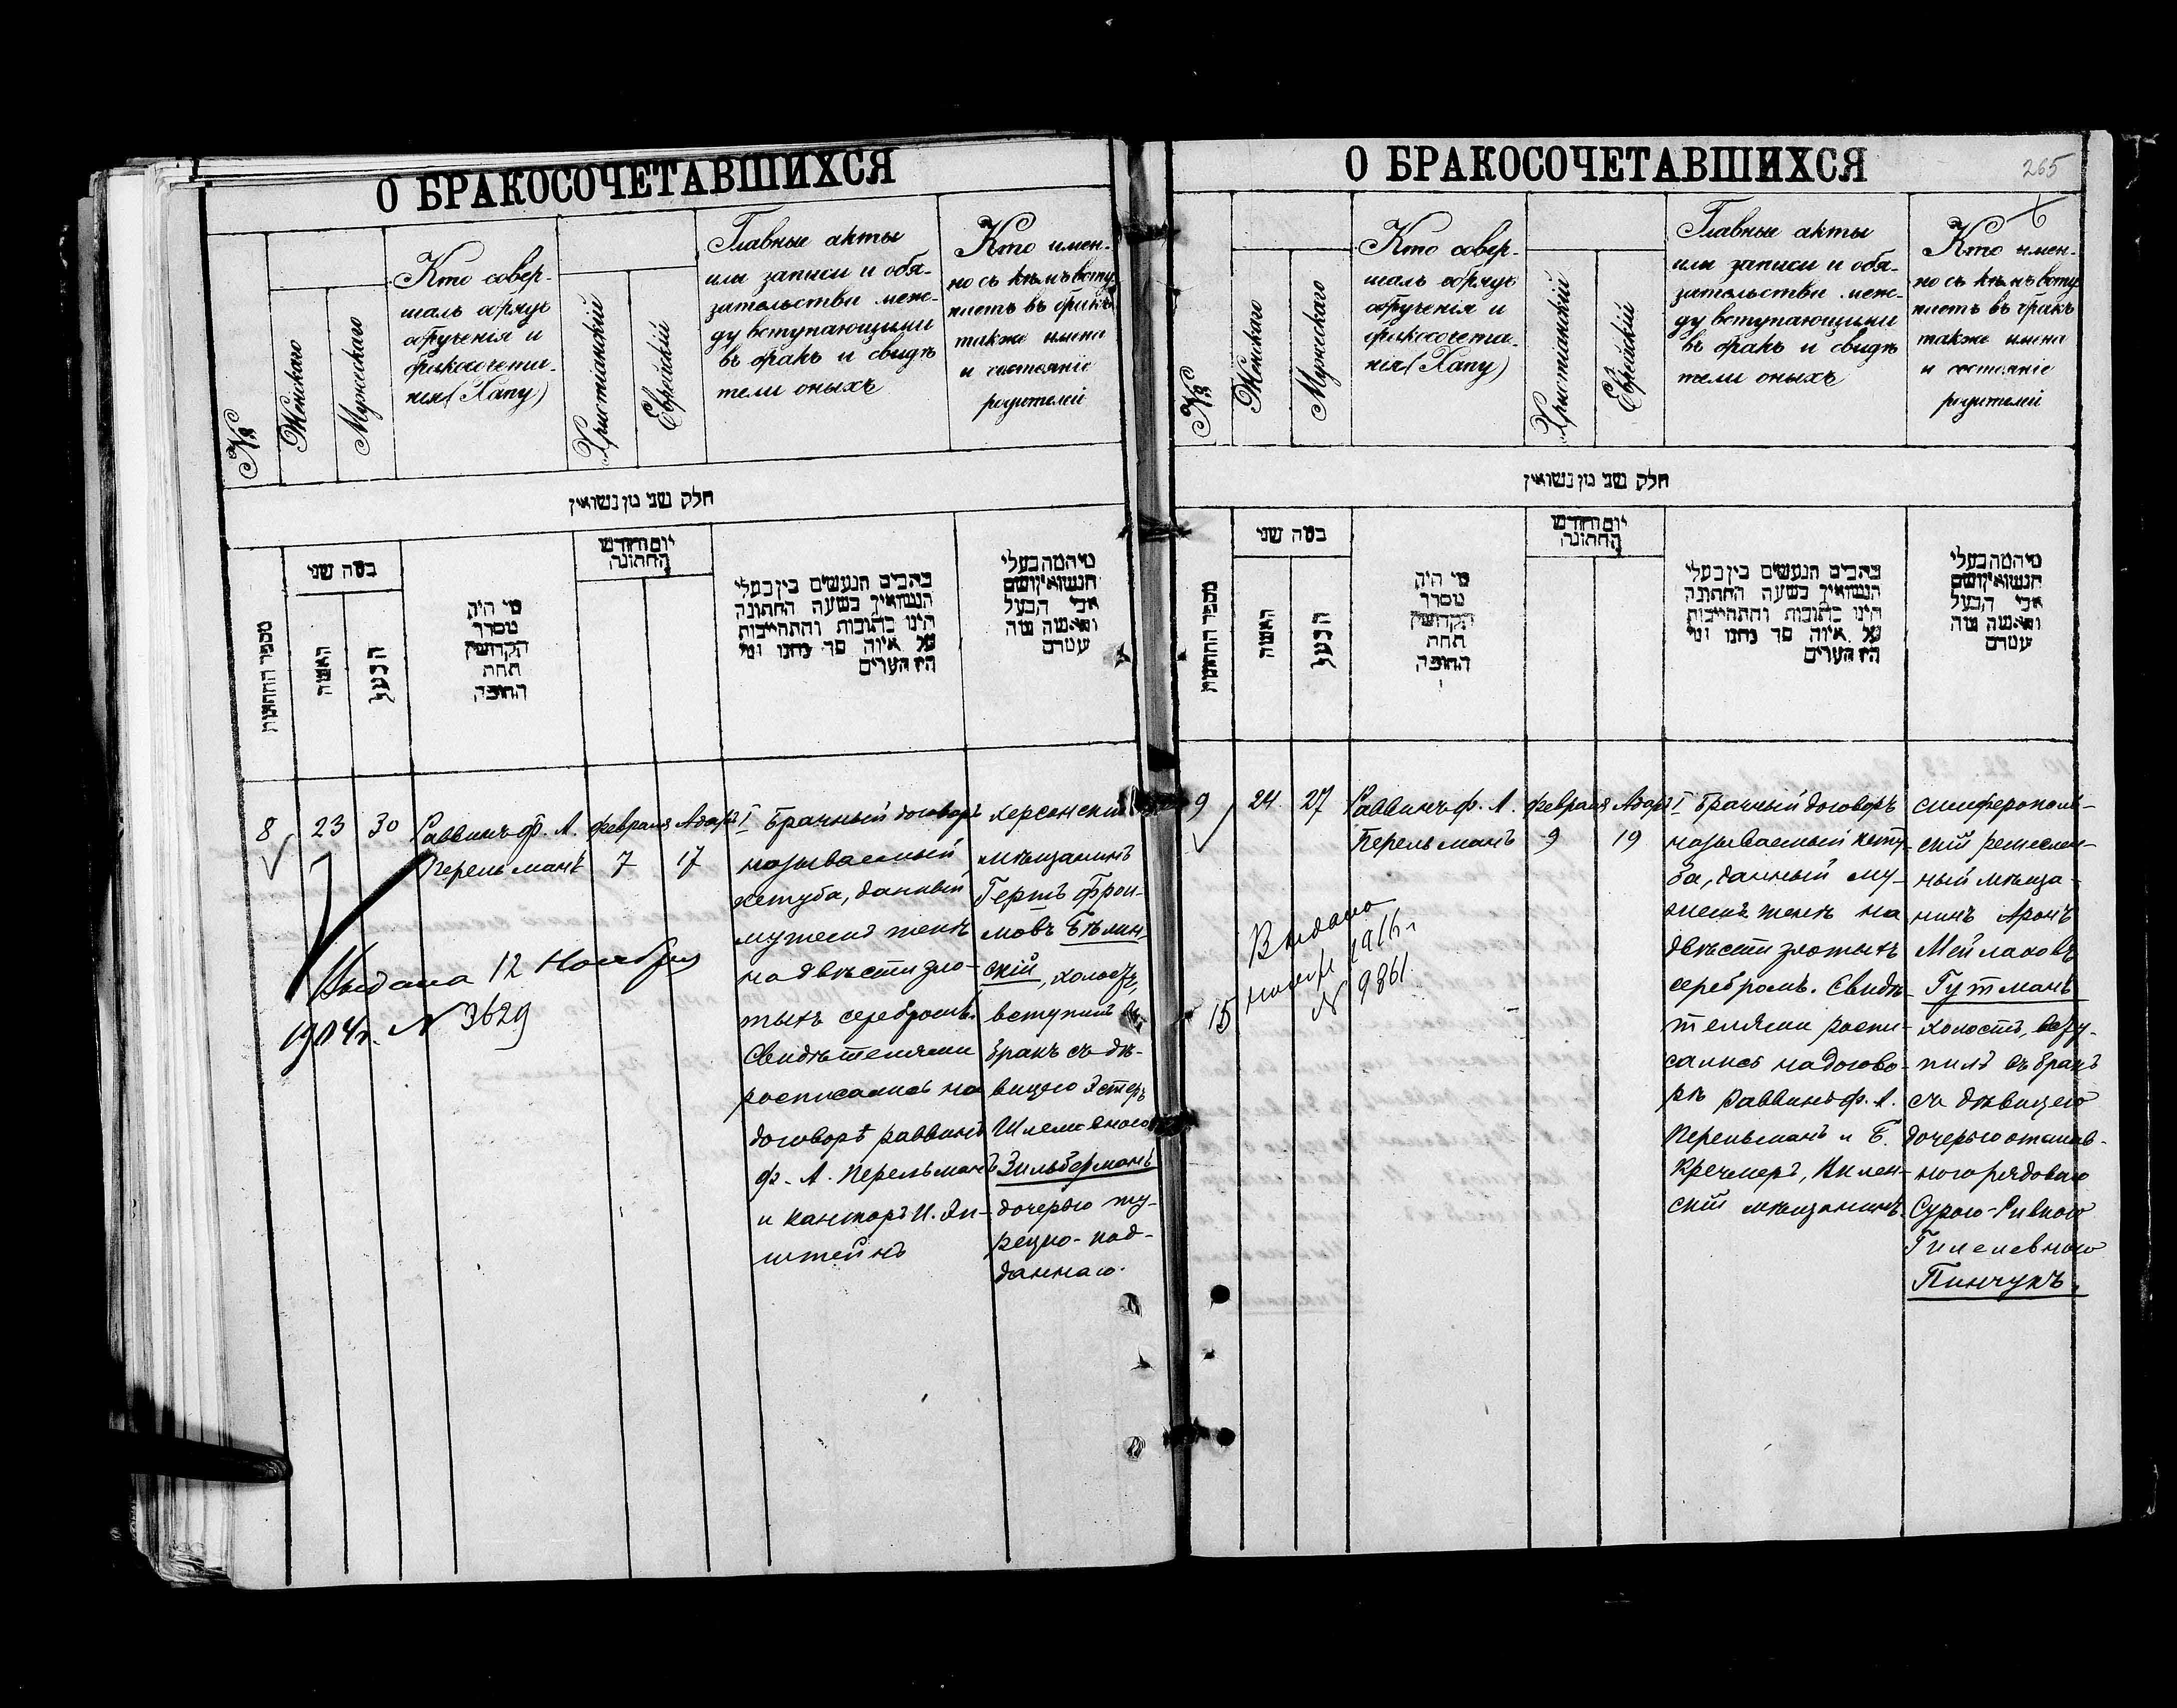 О БРАКОСОЧЕТАВШИХСЯ
№
Женскаго
Мужескаго
Кто совер-
шалъ обрядъ
обрученія и
бракосочета-
нія (Хапу)
Христіанскій
Еврейскій
Главные акты
или записи и обя-
зательства меж-
ду вступающими
въ бракъ и свидѣ
тели оныхъ
Кто имен-
но съ кѣмъ всту
паетъ въ бракъ
также имена
и состояніе
родителей
חלק שני מן נשואין
מספר החתונות
כמה שני
האשה
הבעל
מי היה
מסדר
הקדושין
תחת
החופה
יום וחודש
החתונה
כתבים הנעשים בין בעלי
הנשואין בשעה החתונה
היינו כתובות והתחייבות
על איזה סך נתנו ומי
היו העדים
מי המה בעלי
הנשואין ושם
אבי הבעל
והאשה מה
עשרם
8
23
30
Раввинъ Ф. А.
Перельманъ
Февраля
7
Адаръ I
17
Брачный договоръ
называемый
кетуба, данный
мужемъ женѣ
на двѣсти зло-
тыхъ серебромъ.
Свидѣтелями
росписались на
договорѣ раввинъ
Ф. А. Перельманъ
и канторъ И. Эп-
штейнъ
Херсонскій
мѣщанинъ
Гершъ Фрои-
мовъ Бѣлин-
скій, холостъ,
вступилъ въ
бракъ съ дѣ-
вицею Эстеръ
Шлемовною
Зильберманъ
дочерью ту-
рецко-под-
даннаго.
Выдана 12 Ноября
1904г. № 3629
О БРАКОСОЧЕТАВШИХСЯ
265
6
№
Женскаго
Мужескаго
Кто совер-
шалъ обрядъ
обрученія и
бракосочета-
нія (Хапу)
Христіанскій
Еврейскій
Главные акты
или записи и обя-
зательства меж-
ду вступающими
въ бракъ и свидѣ
тели оныхъ
Кто имен-
но съ кѣмъ всту
паетъ въ бракъ
также имена
и состояніе
родителей
חלק שני מן נשואין
מספר החתונות
כמה שני
האשה
הבעל
מי היה
מסדר
הקדושין
תחת
החופה
יום וחודש
החתונה
כתבים הנעשים בין בעלי
הנשואין בשעה החתונה
היינו כתובות והתחייבות
על איזה סך נתנו ומי
היו העדים
מי המה בעלי
הנשואין ושם
אבי הבעל
והאשה מה
עשרם
9
24
27
Раввинъ Ф. А.
Перельманъ
Февраля
9
Адаръ I
19
Брачный договоръ
называемый кету-
ба, данный му-
жемъ женѣ на
двѣсти злотыхъ
серебромъ. Свидѣ-
телями роспи-
сались на догово-
рѣ раввинъ Ф. А.
Перельманъ и Б.
Кречмеръ, Вилен-
скій мѣщанинъ.
Симферополь-
скій ремеслен-
ный мѣща-
нинъ Аронъ
Мейлаховъ
Гутманъ
холостъ, всту-
пилъ въ бракъ
съ дѣвицею
дочерью отстав-
ного рядового
Сурою-Ривкою
Гилелевною
Пинчукъ.
Выдана
15 ноября 1916 г.
№ 9861.